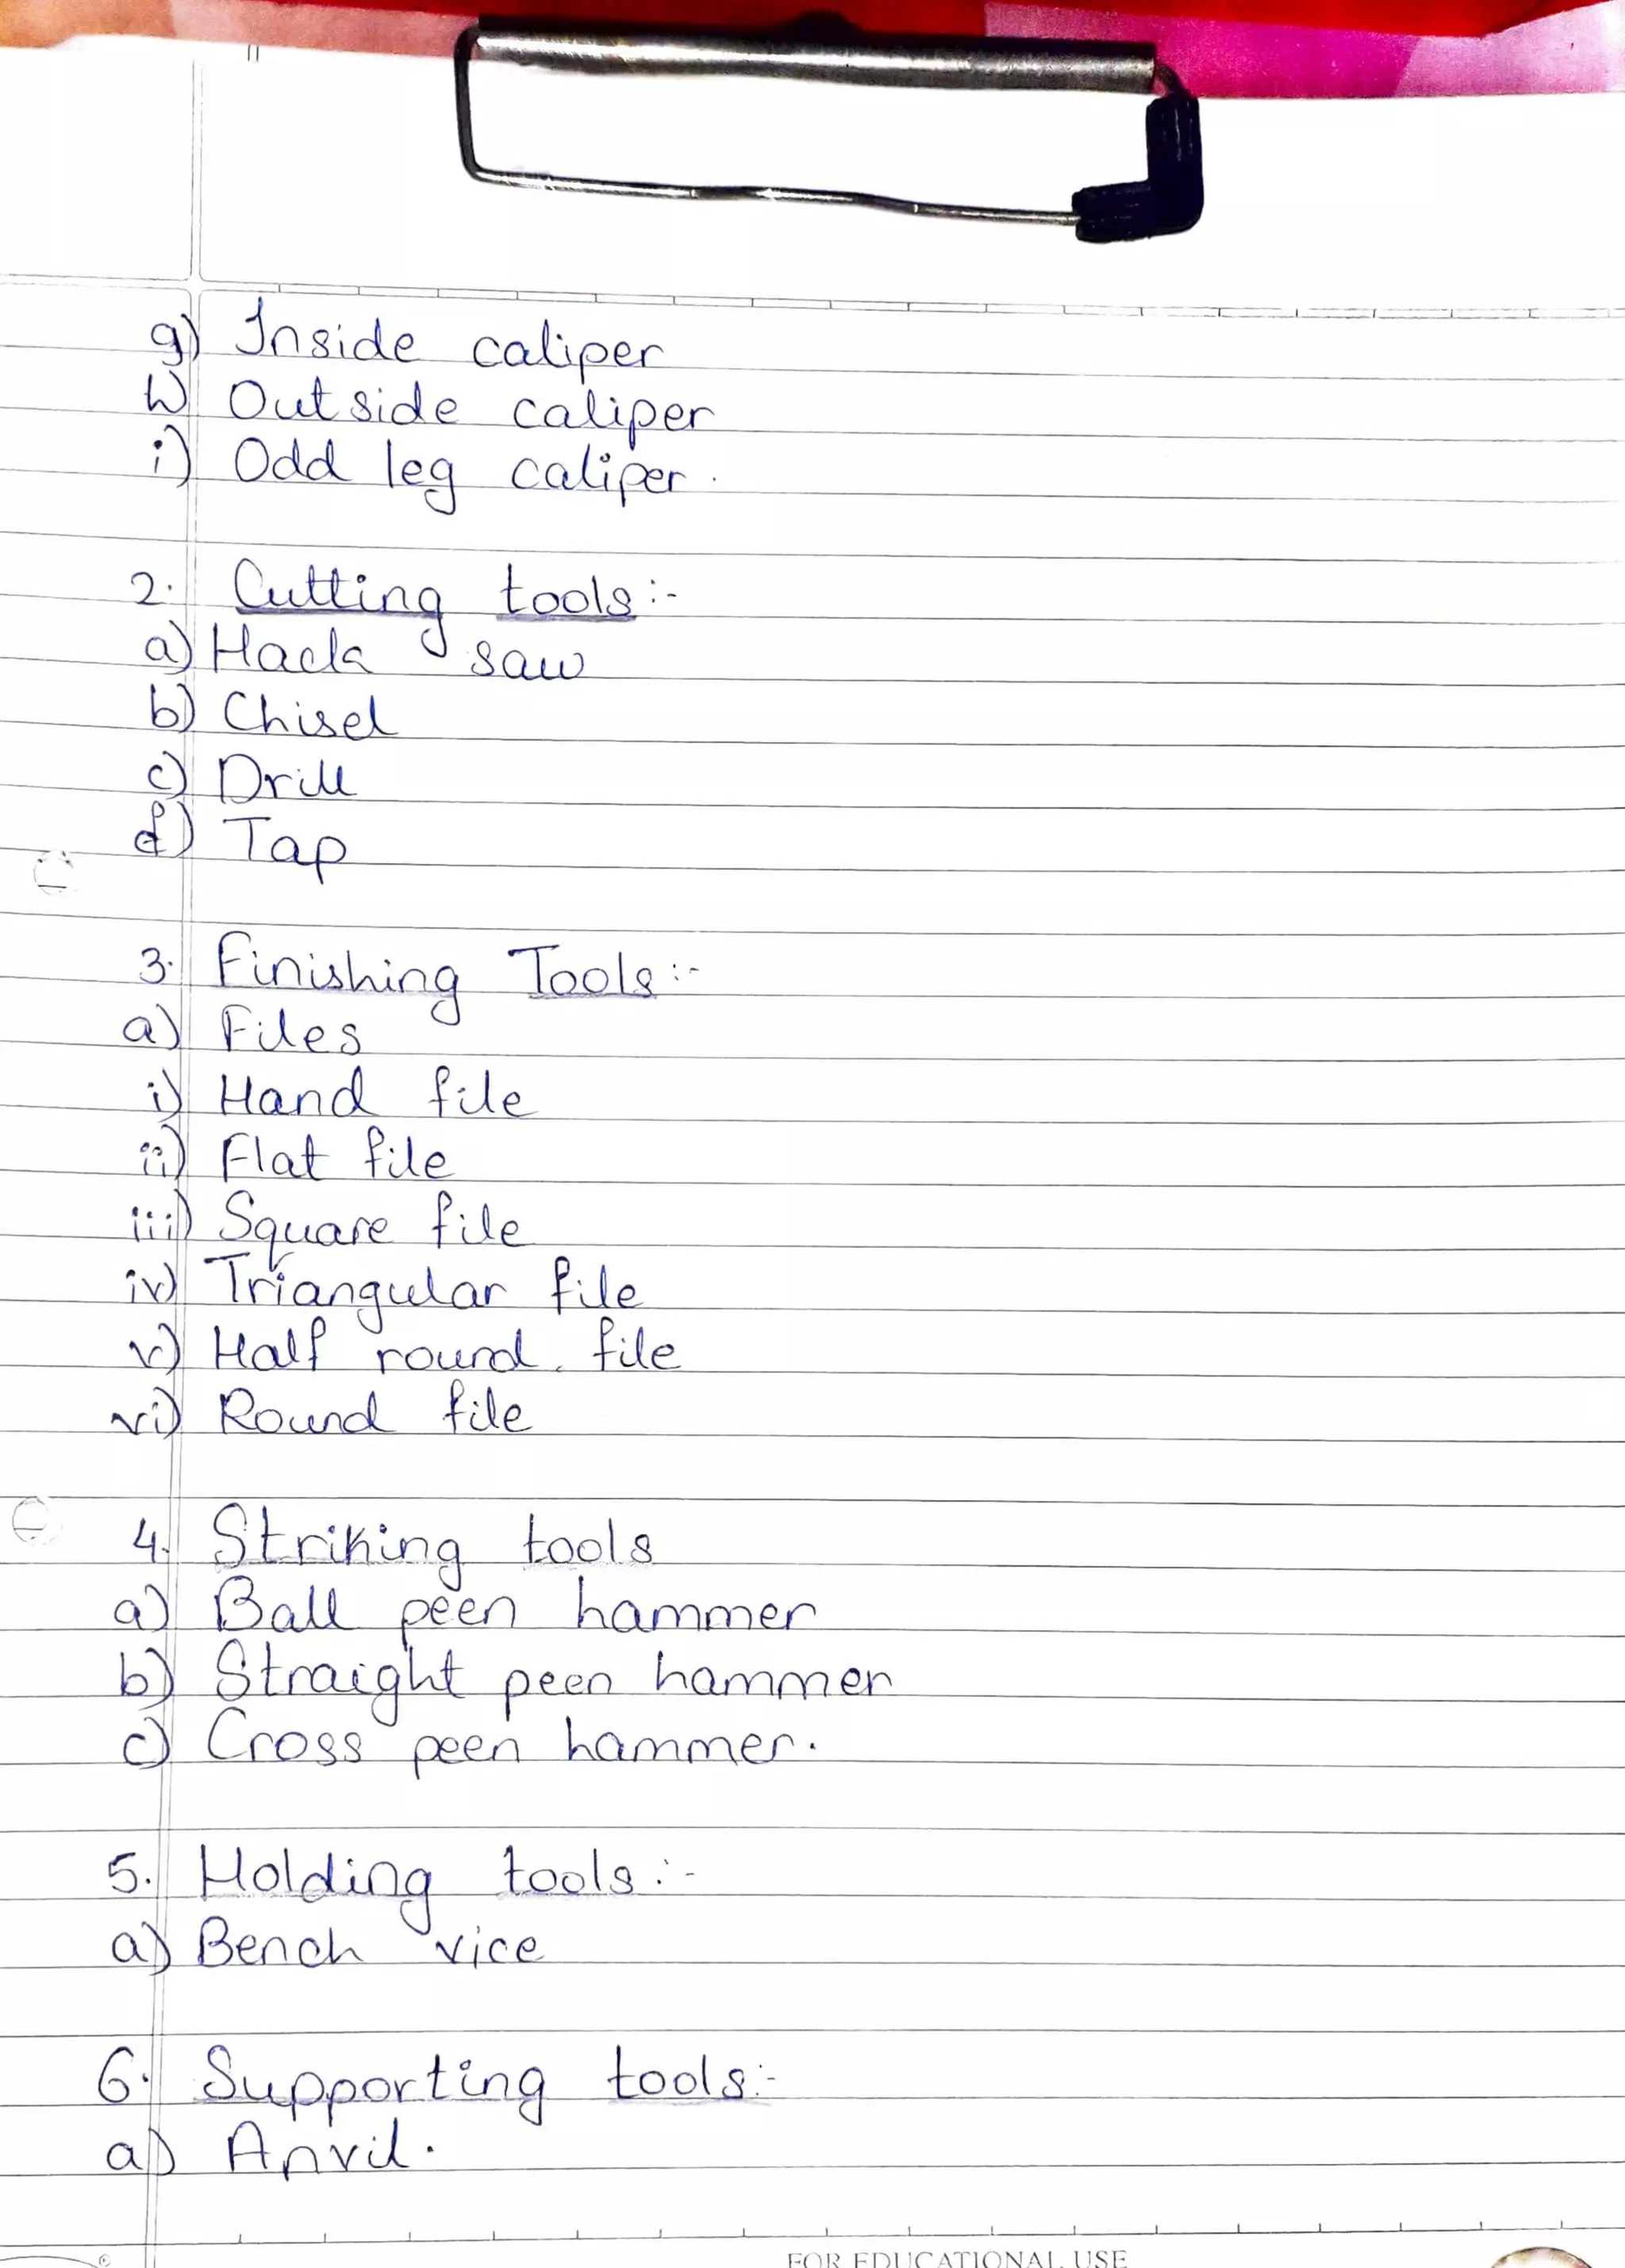 g) Inside caliper
h) Outside caliper
i) Odd leg caliper.
2. Cutting tools:-
a) Hack saw
b) Chisel
c) Drill
d) Tap
3. Finishing Tools:-
a) Files
i) Hand file
ii) Flat file
iii) Square file
iv) Triangular file
v) Half round file
vi) Round file
4. Striking tools
a) Ball peen hammer
b) Straight peen hammer
c) Cross peen hammer.
5. Holding tools:-
a) Bench vice
6. Supporting tools:-
a) Anvil.
FOR EDUCATIONAL USE